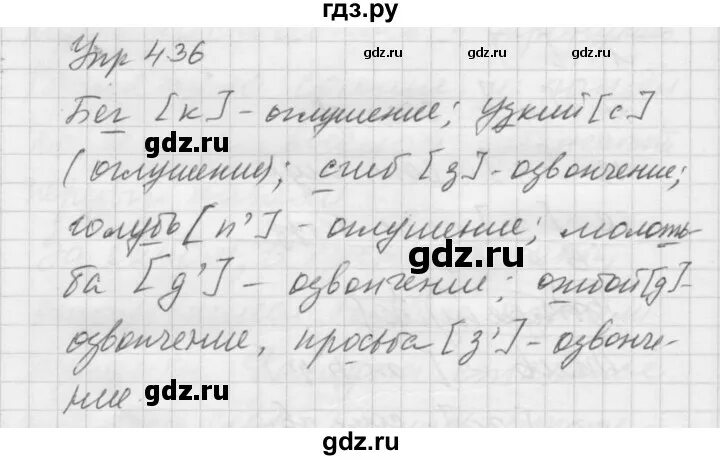 гдз.ру
Упр 436
gdz.ru gdz.ru gdz.ru
Бег [к] - оглушение; узкий [с]
gdz.ru
(оглушение); сгиб [з] - озвончение;
gdz.ru gdz.ru
голубь [п'] - оглушение; молоть-
gdz.ru
ба [д'] - озвончение; отбой [д] -
gdz.ru gdz.ru
озвончение, просьба [з'] - озвонче-
ние
gdz.ru gdz.ru
gdz.ru